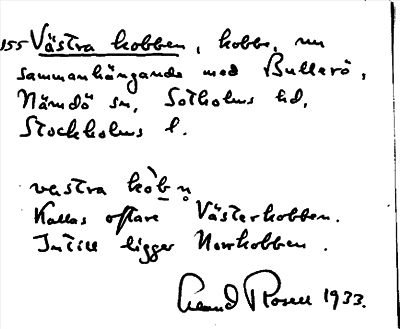 155 Västra kobben, kobbe, nu
sammanhängande med Bullerö,
Nämdö sn, Sotholms hd,
Stockholms l.
västra kòb̥n̥
Kallas oftare Västerkobben.
Intill ligger Norrkobben.
Rosell 1933.